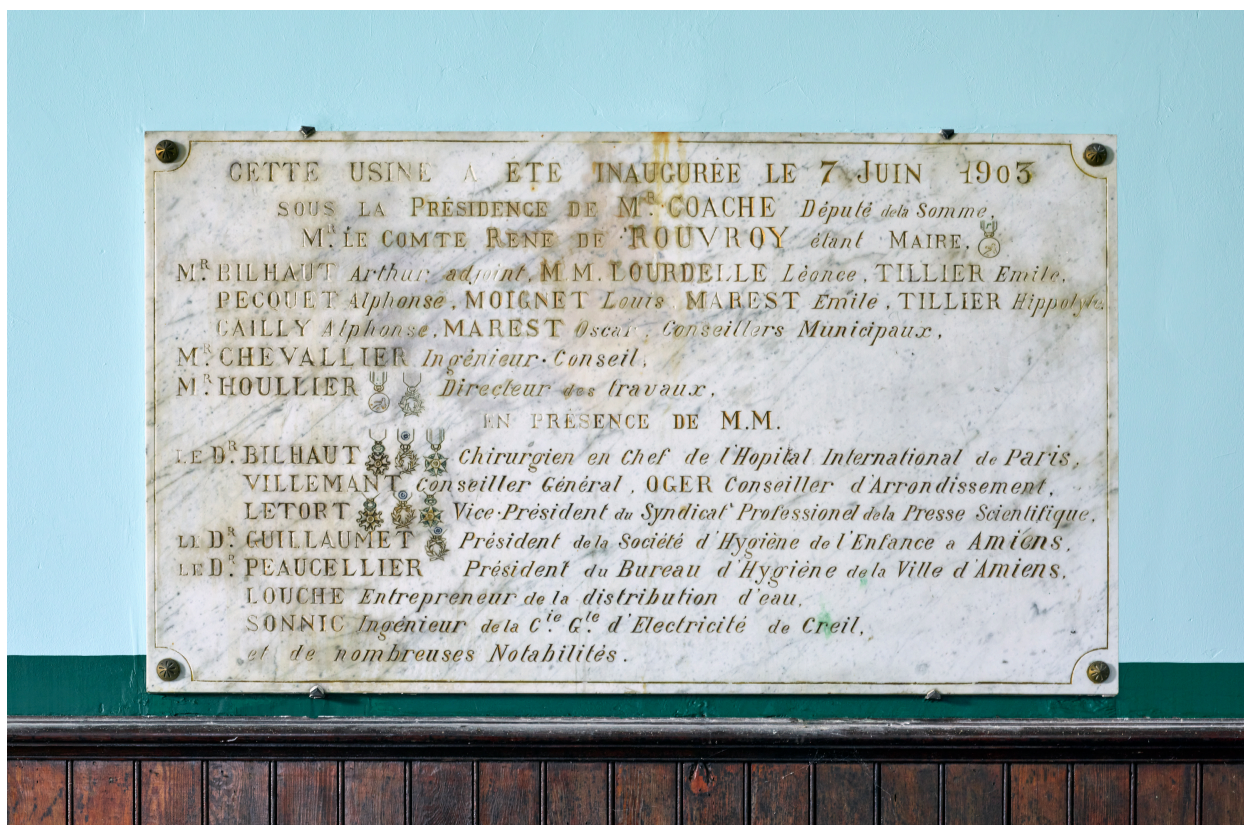 CETTE USINE A ÉTÉ INAUGURÉE LE 7 JUIN 1903
SOUS LA PRÉSIDENCE DE MR. COACHE Député de la Somme,
MR. LE COMTE RENE DE ROUVROY étant MAIRE,
MR. BILHAUT Arthur adjoint, M.M. LOURDELLE Léonce, TILLIER Emile,
PECQUET Alphonse, MOIGNET Louis, MAREST Emile, TILLIER Hippolyte,
CAILLY Alphonse, MAREST Oscar, Conseillers Municipaux,
MR. CHEVALLIER Ingénieur-Conseil,
MR. HOULLIER Directeur des travaux,
EN PRÉSENCE DE M.M.
LE DR. BILHAUT Chirurgien en Chef de l'Hopital International de Paris,
VILLEMANT Conseiller Général, OGER Conseiller d'Arrondissement,
LETORT Vice-Président du Syndicat Professionel de la Presse Scientifique,
LE DR. GUILLAUMET Président de la Société d'Hygiène de l'Enfance a Amiens,
LE DR. PEAUCELLIER Président du Bureau d'Hygiéne de la Ville d'Amiens,
LOUCHE Entrepreneur de la distribution d'eau,
SONNIC Ingénieur de la Cie. Gle. d'Electricité de Creil,
et de nombreuses Notabilités.